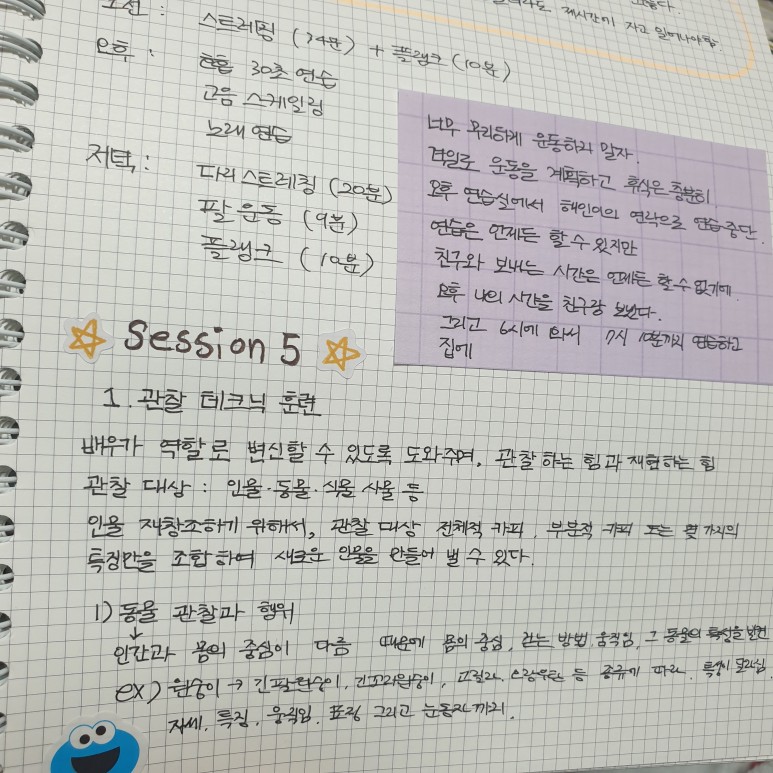 제시간에 자고 일어나야함.
오전 : 스트레칭 (74분) + 플랭크 (10분)
오후 : 호흡 30초 연습
고음 스케일링
노래 연습
저녁 : 다리 스트레칭 (20분)
팔 운동 (9분)
플랭크 (10분)
너무 무리하게 운동하지 말자.
격일로 운동을 계획하고 휴식은 충분히.
오후 연습실에서 해인이의 연락으로 연습 중단.
연습은 언제든 할 수 있지만
친구와 보내는 시간은 언제든 할 수 없기에.
오후 나의 시간을 친구랑 보낸다.
그리고 6시에 와서 7시 10분까지 연습하고
집에
Session 5
1. 관찰 테크닉 훈련
배우가 역할로 변신할 수 있도록 도와주며, 관찰하는 힘과 재현하는 힘
관찰 대상 : 인물·동물·식물 사물 등
인물 재창조하기 위해서, 관찰 대상 전체적 카피, 부분적 카피 또는 몇 가지의
특징만을 조합하여 새로운 인물을 만들어 낼 수 있다.
1) 동물 관찰과 행위
↓
인간과 몸의 중심이 다름 때문에 몸의 중심, 걷는 방법, 움직임, 그 동물의 특성을 발견
ex) 원숭이 → 긴팔원숭이, 긴꼬리원숭이, 고릴라, 오랑우탄 등 종류에 따라 특징이 달라짐
자세, 특징, 움직임, 표정 그리고 눈동자까지.